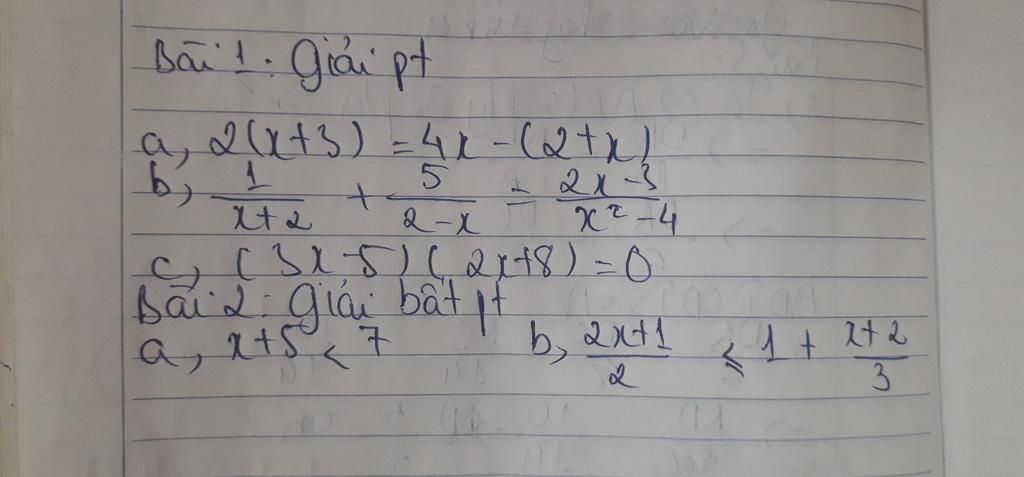 Bài 1: Giải pt
a, 2(x+3) = 4x - (2+x)
b, 1/(x+2) + 5/(2-x) = (2x-3)/(x²-4)
c, (3x-5)(2x+8) = 0
Bài 2: Giải bất pt
a, x+5 < 7 b, (2x+1)/2 ≤ 1 + (x+2)/3